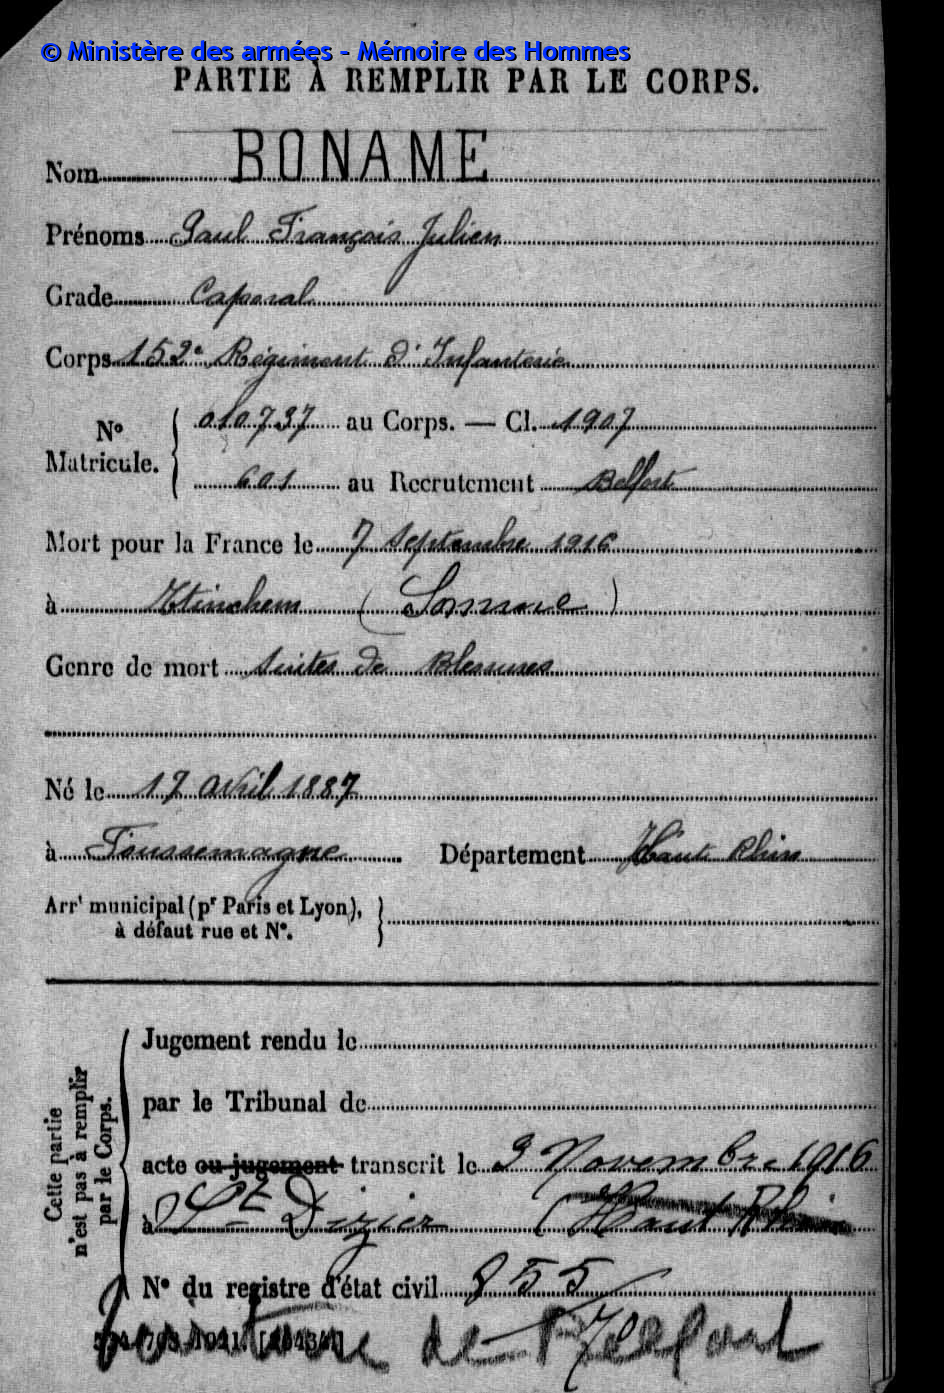 © Ministère des armées - Mémoire des Hommes
PARTIE À REMPLIR PAR LE CORPS.
Nom BONAME
Prénoms Paul François Julien
Grade Caporal
Corps 152e Régiment d'Infanterie
N° Matricule. 010737 au Corps. — Cl. 1907
601 au Recrutement Belfort
Mort pour la France le 7 Septembre 1916
à Etinehem (Somme)
Genre de mort Suites de Blessures
Né le 17 avril 1887
à Foussemagne Département Haut Rhin
Arrt municipal (pr Paris et Lyon),
à défaut rue et N°.
Cette partie
n'est pas à remplir
par le Corps.
Jugement rendu le
par le Tribunal de
acte ou jugement transcrit le 3 Novembre 1916
à St Dizier (Haut Rhin
N° du registre d'état civil 855/70
Territoire de Belfort